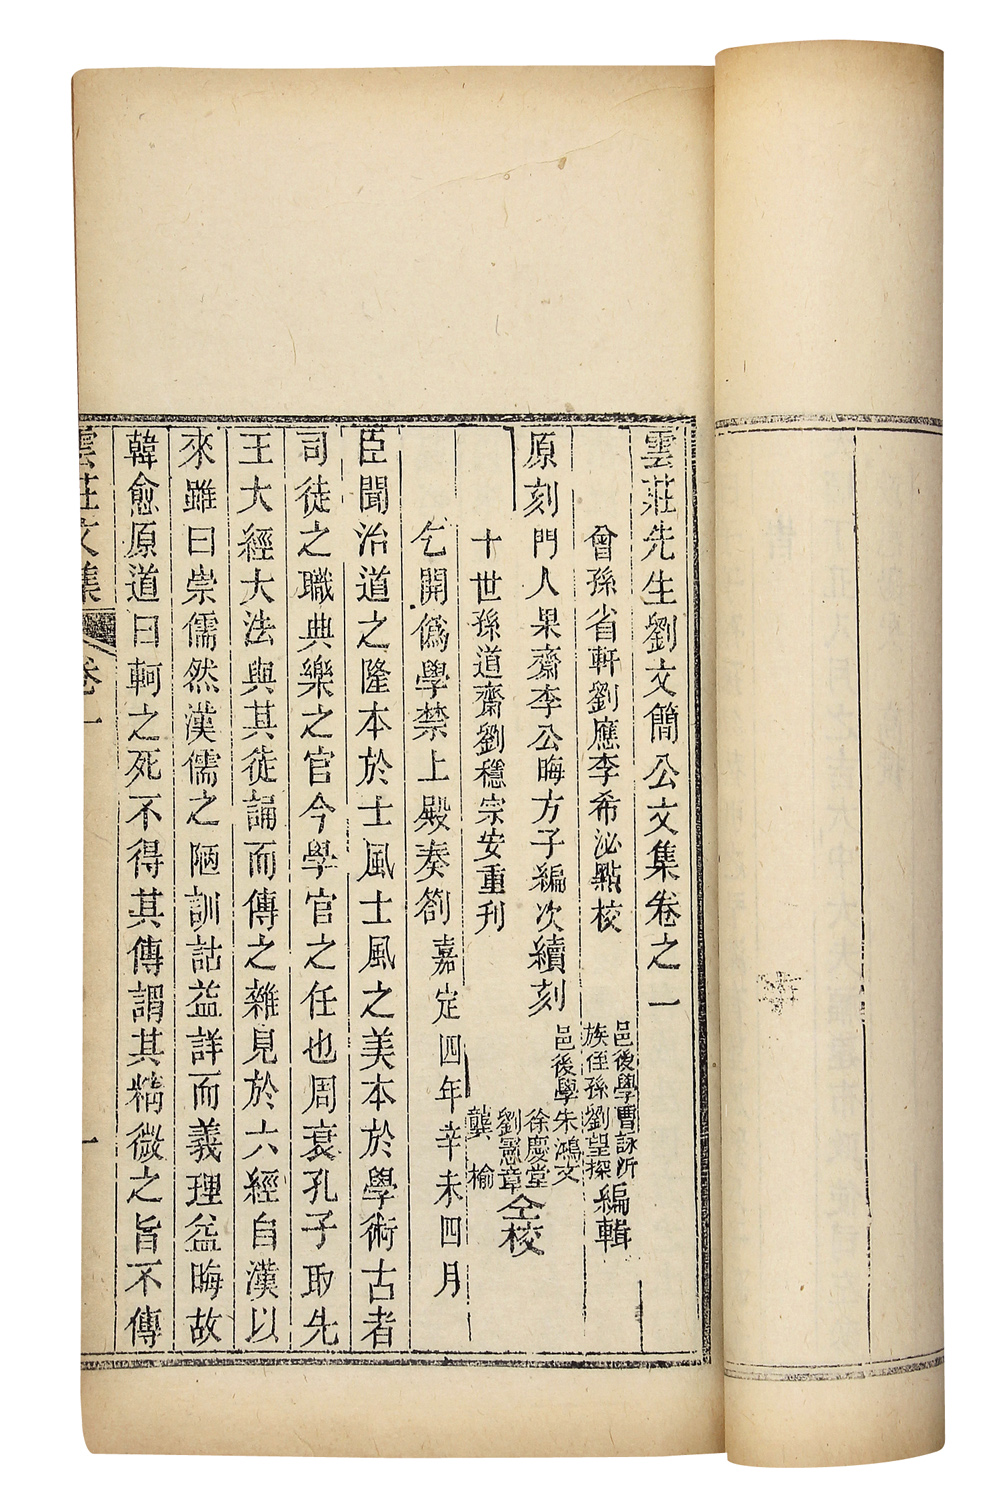 雲莊先生劉文簡公文集卷之一
曾孫省軒劉應李希泌點校
原刻
門人果齋李公晦方子編次續刻
十世孫道齋劉穩宗安重刊
邑後學曹詠沂
族侄孫劉望探
編輯
邑後學朱鴻文
徐慶堂
劉憲章
龔榆
仝校
乞開僞學禁上殿奏劄 嘉定四年辛未四月
臣聞治道之隆本於士風士風之美本於學術古者
司徒之職典樂之官今學官之任也周衰孔子取先
王大經大法與其徒誦而傳之雜見於六經自漢以
來雖曰崇儒然漢儒之陋訓詁益詳而義理益晦故
韓愈原道曰軻之死不得其傳謂其精微之旨不傳
雲莊文集
卷一
一